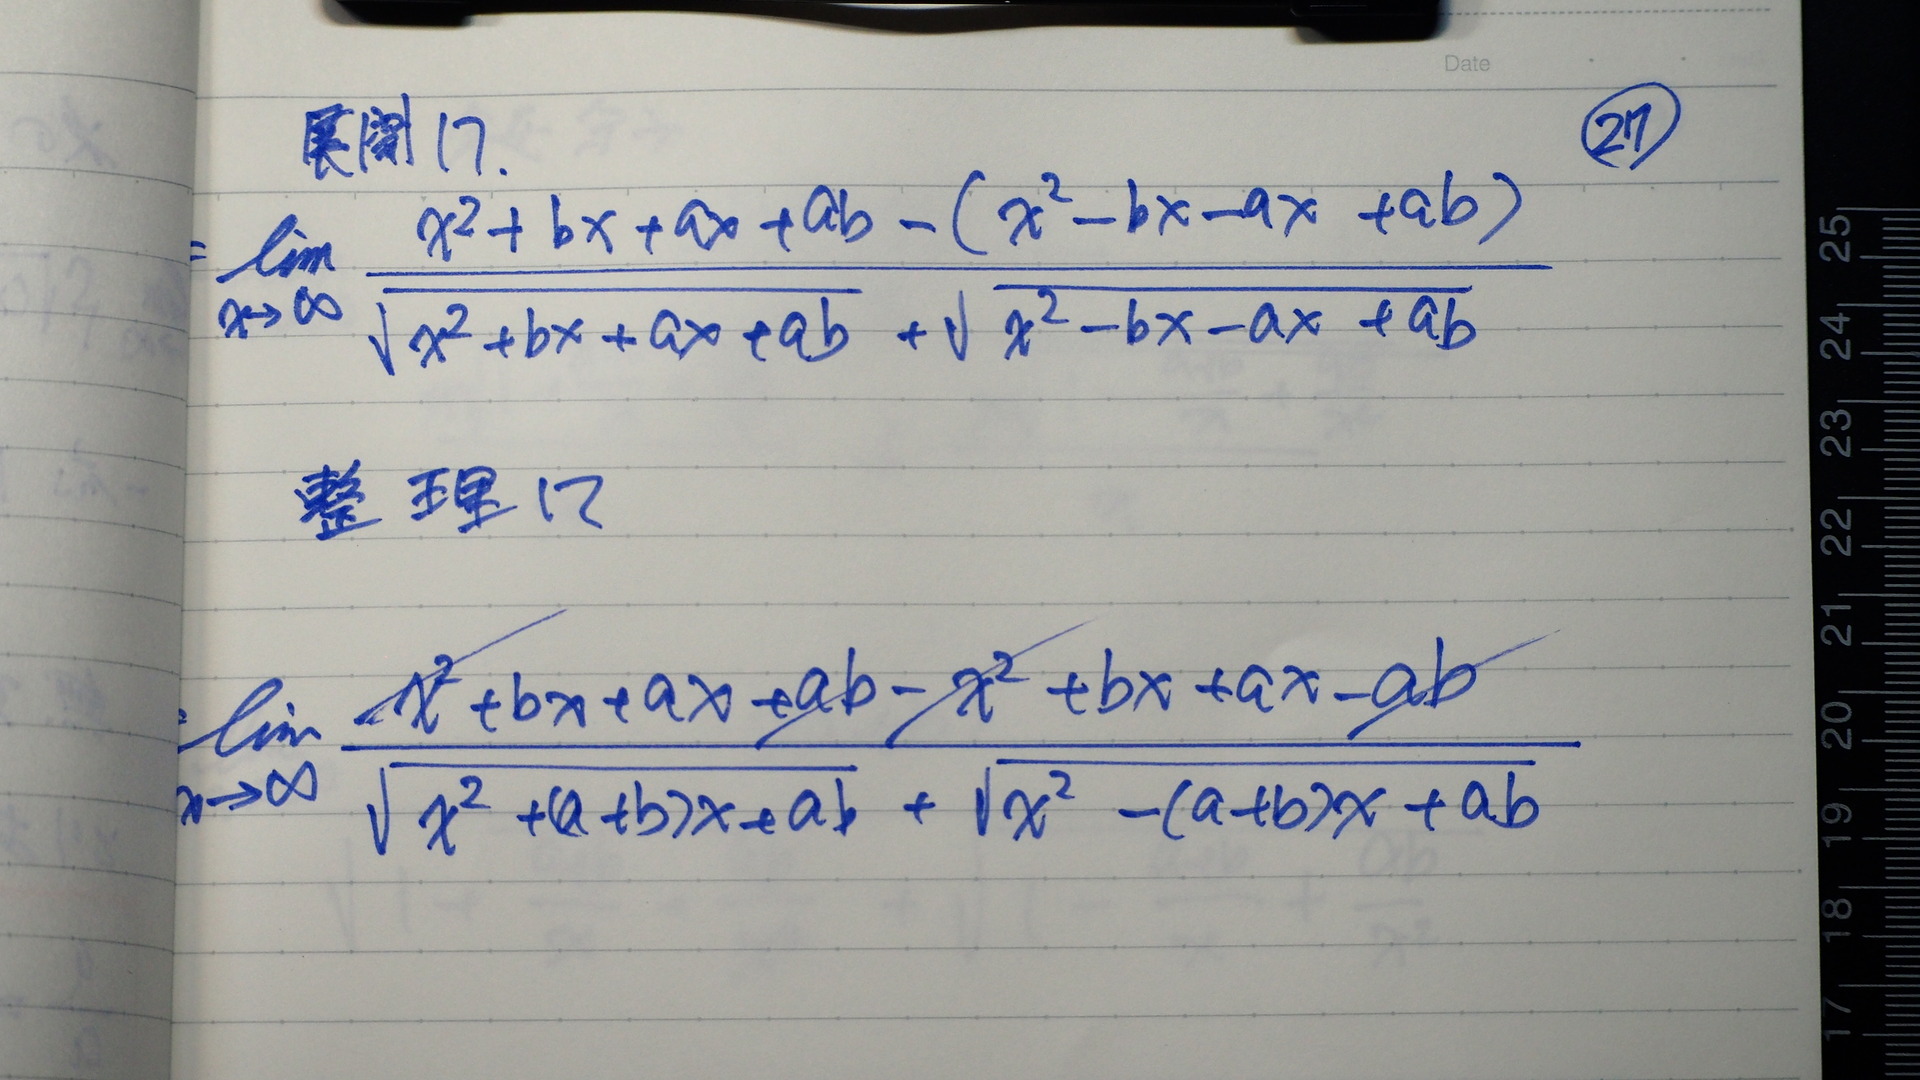 Date
㉗
展開して.
= lim x→∞ (x² + bx + ax + ab − (x² − bx − ax + ab)) / (√(x² + bx + ax + ab) + √(x² − bx − ax + ab))
整理して
= lim x→∞ (x² + bx + ax + ab − x² + bx + ax − ab) / (√(x² + (a+b)x + ab) + √(x² − (a+b)x + ab))
25
24
23
22
21
20
19
18
17